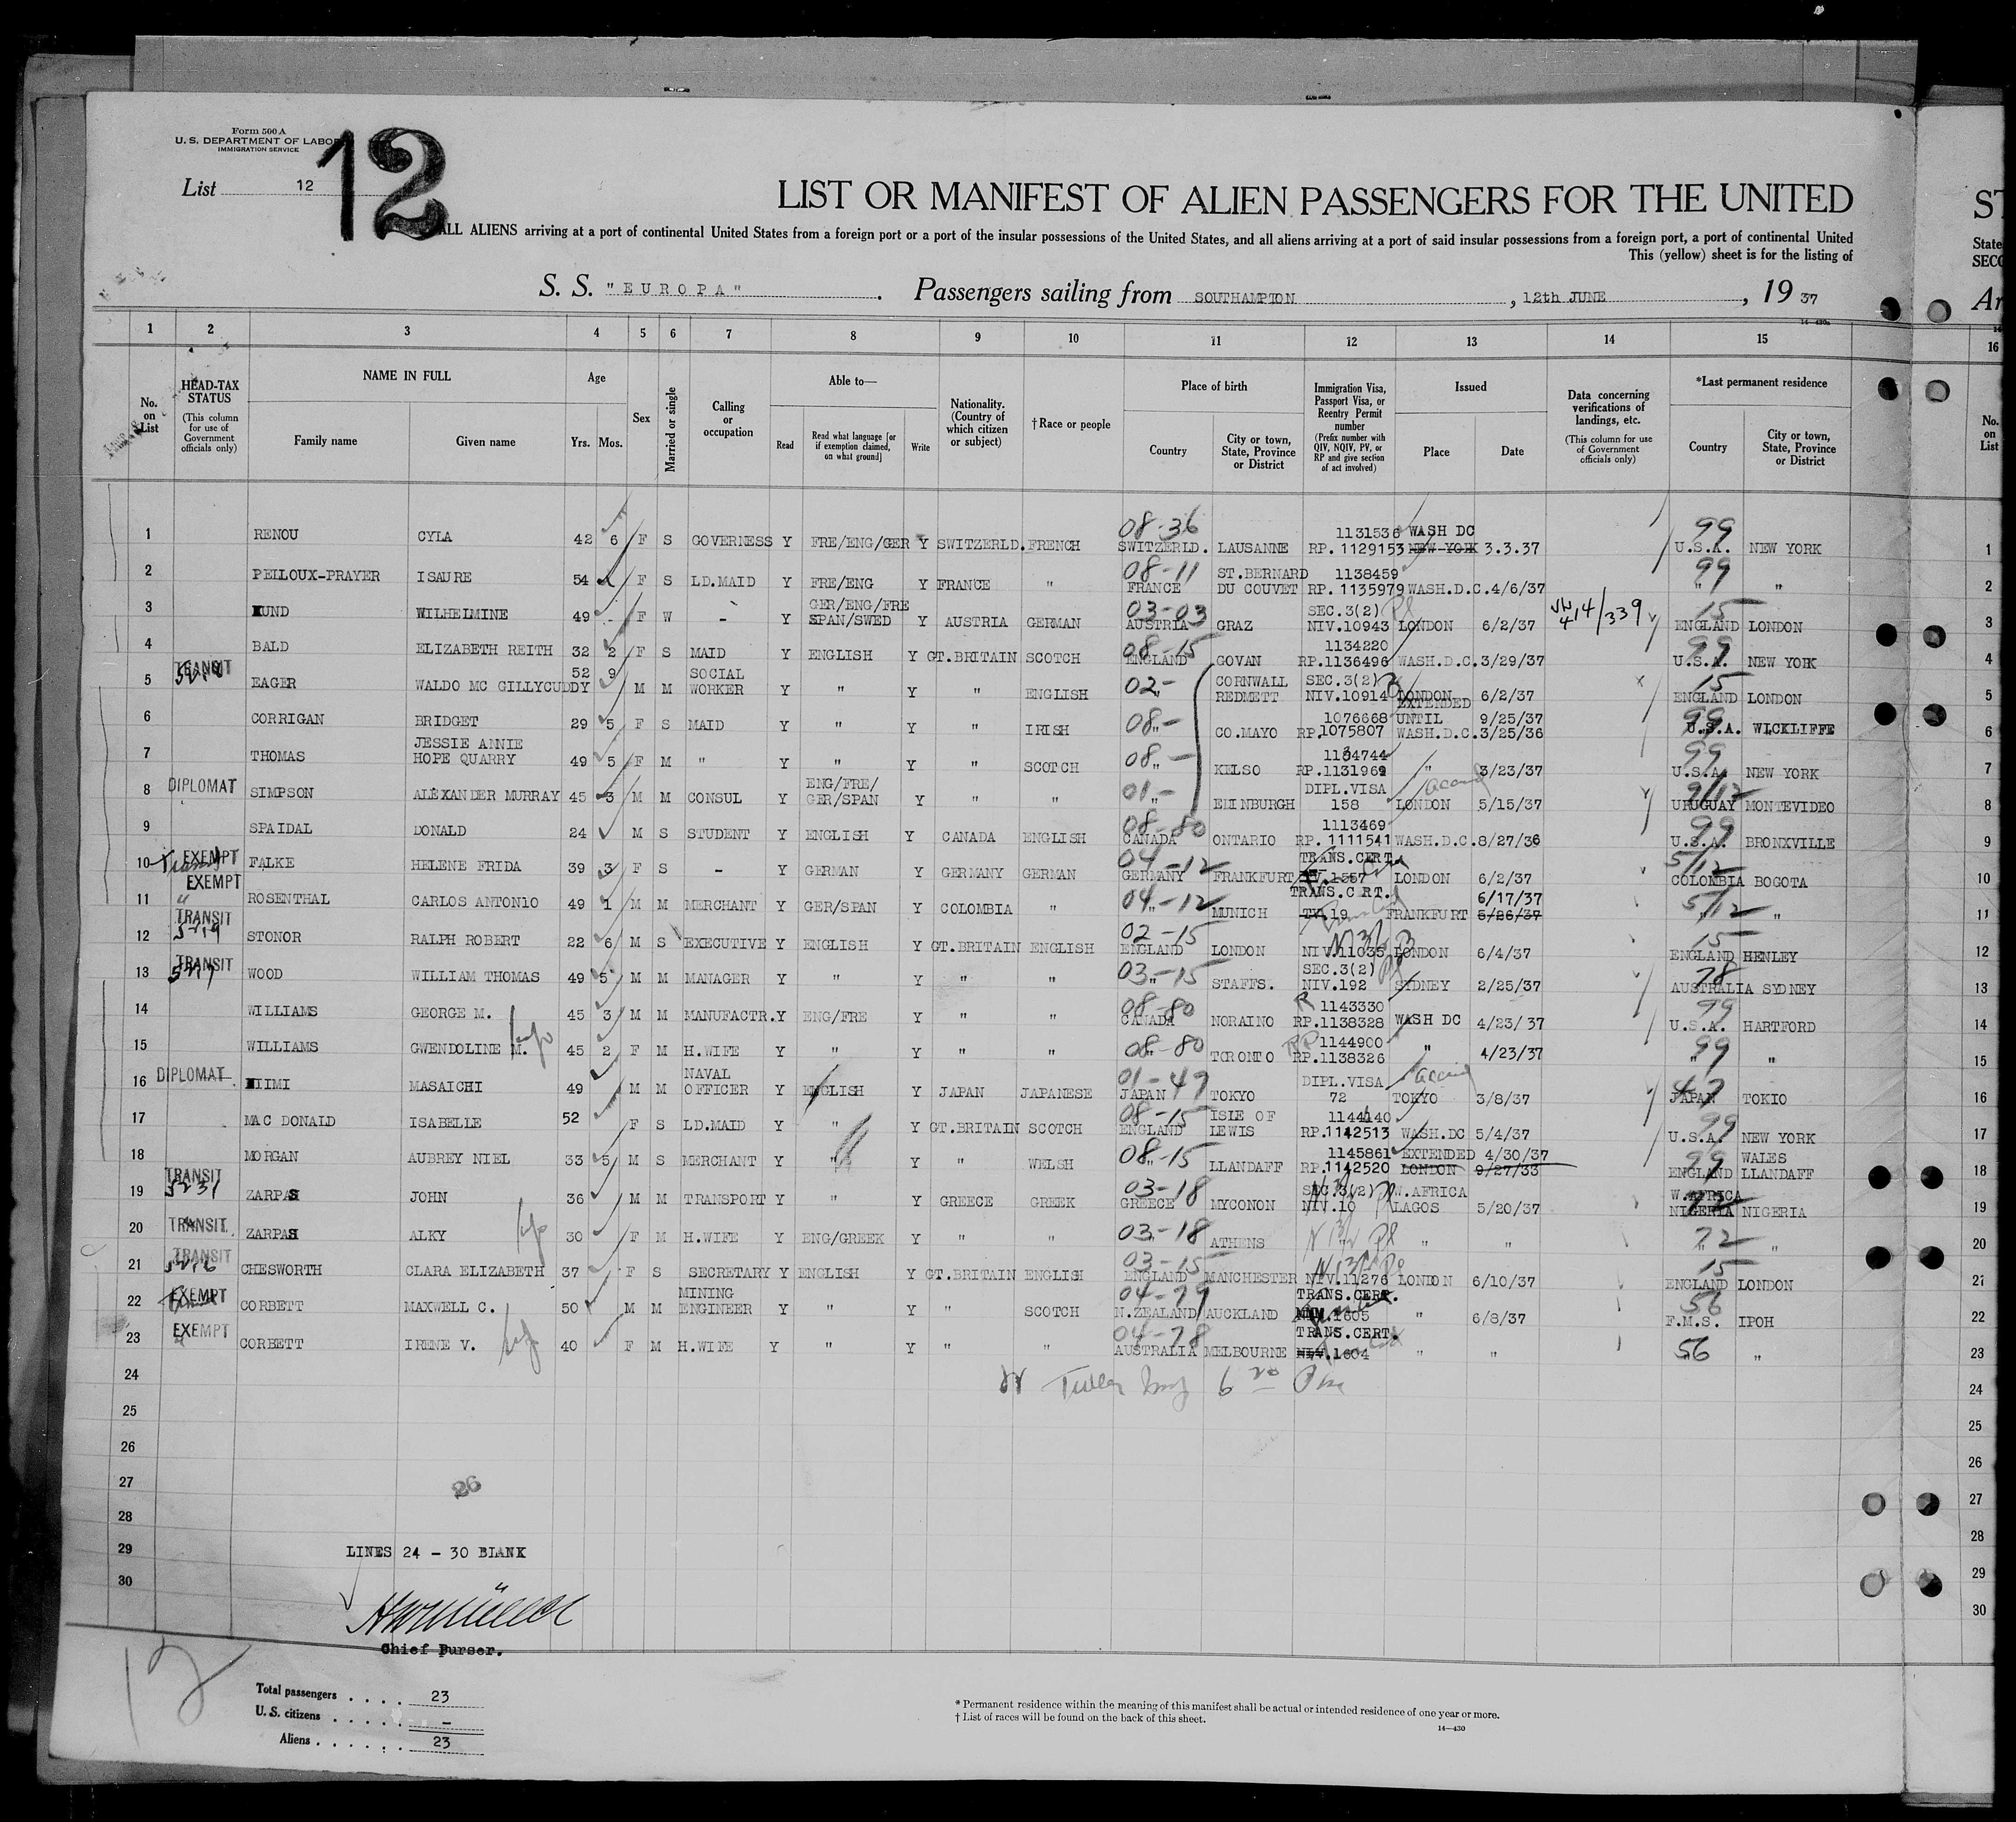 Form 500 A
U. S. DEPARTMENT OF LABOR
IMMIGRATION SERVICE
List 12
12
LIST OR MANIFEST OF ALIEN PASSENGERS FOR THE UNITED
ALL ALIENS arriving at a port of continental United States from a foreign port or a port of the insular possessions of the United States, and all aliens arriving at a port of said insular possessions from a foreign port, a port of continental United
This (yellow) sheet is for the listing of
S. S. "EUROPA". Passengers sailing from SOUTHAMPTON, 12th JUNE, 19 37
ST
State
SECO
Ar
1 2 3 4 5 6 7 8 9 10 11 12 13 14 15 16
No. on List
HEAD-TAX STATUS (This column for use of Government officials only)
NAME IN FULL
Family name Given name
Age
Yrs. Mos.
Sex
Married or single
Calling or occupation
Able to—
Read
Read what language [or if exemption claimed, on what ground]
Write
Nationality. (Country of which citizen or subject)
† Race or people
Place of birth
Country
City or town, State, Province or District
Immigration Visa, Passport Visa, or Reentry Permit number (Prefix number with QIV, NQIV, PV, or RP and give section of act involved)
Issued
Place Date
Data concerning verifications of landings, etc. (This column for use of Government officials only)
*Last permanent residence
Country
City or town, State, Province or District
No. on List
1 RENOU CYLA 42 6 F S GOVERNESS Y FRE/ENG/GER Y SWITZERLD. FRENCH 08-36 SWITZERLD. LAUSANNE 1131536 RP. 1129153 WASH DC NEW YORK 3.3.37 99 U.S.A. NEW YORK 1
2 PEILLOUX-PRAYER ISAURE 54 F S LD.MAID Y FRE/ENG Y FRANCE " 08-11 FRANCE ST.BERNARD DU COUVET 1138459 RP. 1135979 WASH.D.C. 4/6/37 99 " " 2
3 UND WILHELMINE 49 - F W - Y GER/ENG/FRE SPAN/SWED Y AUSTRIA GERMAN 03-03 AUSTRIA GRAZ SEC.3(2) NIV.10943 LONDON 6/2/37 14/339 15 ENGLAND LONDON 3
4 BALD ELIZABETH REITH 32 2 F S MAID Y ENGLISH Y GT.BRITAIN SCOTCH 08-15 ENGLAND GOVAN 1134220 RP.1136496 WASH.D.C. 3/29/37 99 U.S.A. NEW YORK 4
5 TRANSIT EAGER WALDO MC GILLYCUDDY 52 9 M M SOCIAL WORKER Y " Y " ENGLISH 02- " CORNWALL REDMETT SEC.3(2) NIV.10914 LONDON 6/2/37 15 ENGLAND LONDON 5
6 CORRIGAN BRIDGET 29 5 F S MAID Y " Y " IRISH 08- " CO.MAYO 1076668 RP.1075807 EXTENDED UNTIL 9/25/37 WASH.D.C. 3/25/36 99 U.S.A. WICKLIFFE 6
7 THOMAS JESSIE ANNIE HOPE QUARRY 49 5 F M " Y " Y " SCOTCH 08- " KELSO 1134744 RP.1131962 " 3/23/37 99 U.S.A. NEW YORK 7
8 DIPLOMAT SIMPSON ALEXANDER MURRAY 45 3 M M CONSUL Y ENG/FRE/ GER/SPAN Y " " 01- " EDINBURGH DIPL.VISA 158 LONDON 5/15/37 9/12 URUGUAY MONTEVIDEO 8
9 SPAIDAL DONALD 24 M S STUDENT Y ENGLISH Y CANADA ENGLISH 08-80 CANADA ONTARIO 1113469 RP. 1111541 WASH.D.C. 8/27/36 99 U.S.A. BRONXVILLE 9
10 EXEMPT FALKE HELENE FRIDA 39 3 F S - Y GERMAN Y GERMANY GERMAN 04-12 GERMANY FRANKFURT TRANS.CERT. LONDON 6/2/37 5/12 COLOMBIA BOGOTA 10
11 EXEMPT " ROSENTHAL CARLOS ANTONIO 49 1 M M MERCHANT Y GER/SPAN Y COLOMBIA " 04-12 " MUNICH TRANS.C RT. TV.19 FRANKFURT 6/17/37 5/26/37 5/12 " " 11
12 TRANSIT STONOR RALPH ROBERT 22 6 M S EXECUTIVE Y ENGLISH Y GT.BRITAIN ENGLISH 02-15 ENGLAND LONDON NIV.11035 LONDON 6/4/37 15 ENGLAND HENLEY 12
13 TRANSIT WOOD WILLIAM THOMAS 49 5 M M MANAGER Y " Y " " 03-15 " STAFFS. SEC.3(2) NIV.192 SYDNEY 2/25/37 78 AUSTRALIA SYDNEY 13
14 WILLIAMS GEORGE M. 45 3 M M MANUFACTR. Y ENG/FRE Y " " 08-80 CANADA NORAINO 1143330 RP.1138328 WASH DC 4/23/37 99 U.S.A. HARTFORD 14
15 WILLIAMS GWENDOLINE M. 45 2 F M H.WIFE Y " Y " " 08-80 " TORONTO 1144900 RP.1138326 " 4/23/37 99 " " 15
16 DIPLOMAT IIMI MASAICHI 49 M M NAVAL OFFICER Y ENGLISH Y JAPAN JAPANESE 01-47 JAPAN TOKYO DIPL.VISA 72 TOKYO 3/8/37 47 JAPAN TOKIO 16
17 MAC DONALD ISABELLE 52 F S LD.MAID Y " Y GT.BRITAIN SCOTCH 08-15 ENGLAND ISLE OF LEWIS 1144140 RP.1142513 WASH.DC 5/4/37 99 U.S.A. NEW YORK 17
18 MORGAN AUBREY NIEL 33 5 M S MERCHANT Y " Y " WELSH 08-15 " LLANDAFF 1145861 RP.1142520 EXTENDED 4/30/37 LONDON 9/27/33 99 ENGLAND WALES LLANDAFF 18
19 TRANSIT 5231 ZARPAS JOHN 36 M M TRANSPORT Y " Y GREECE GREEK 03-18 GREECE MYCONON SEC.3(2) NIV.10 W.AFRICA LAGOS 5/20/37 W.AFRICA NIGERIA NIGERIA 19
20 TRANSIT ZARPAS ALKY 30 F M H.WIFE Y ENG/GREEK Y " " 03-18 " ATHENS " " 72 " " 20
21 TRANSIT CHESWORTH CLARA ELIZABETH 37 F S SECRETARY Y ENGLISH Y GT.BRITAIN ENGLISH 03-15 ENGLAND MANCHESTER NIV.11276 LONDON 6/10/37 15 ENGLAND LONDON 21
22 EXEMPT CORBETT MAXWELL C. 50 M M MINING ENGINEER Y " Y " SCOTCH 04-79 N.ZEALAND AUCKLAND TRANS.CERT. 1605 " 6/8/37 56 F.M.S. IPOH 22
23 EXEMPT " CORBETT IRENE V. 40 F M H.WIFE Y " Y " " 04-78 AUSTRALIA MELBOURNE TRANS.CERT. NIV.1604 " " 56 " " 23
24 24
25 25
26 26
27 26 27
28 28
29 LINES 24 - 30 BLANK 29
30 30
Chief Purser.
12
Total passengers . . . . 23
U. S. citizens . . . . . –
Aliens . . . . . . 23
* Permanent residence within the meaning of this manifest shall be actual or intended residence of one year or more.
† List of races will be found on the back of this sheet.
14—430